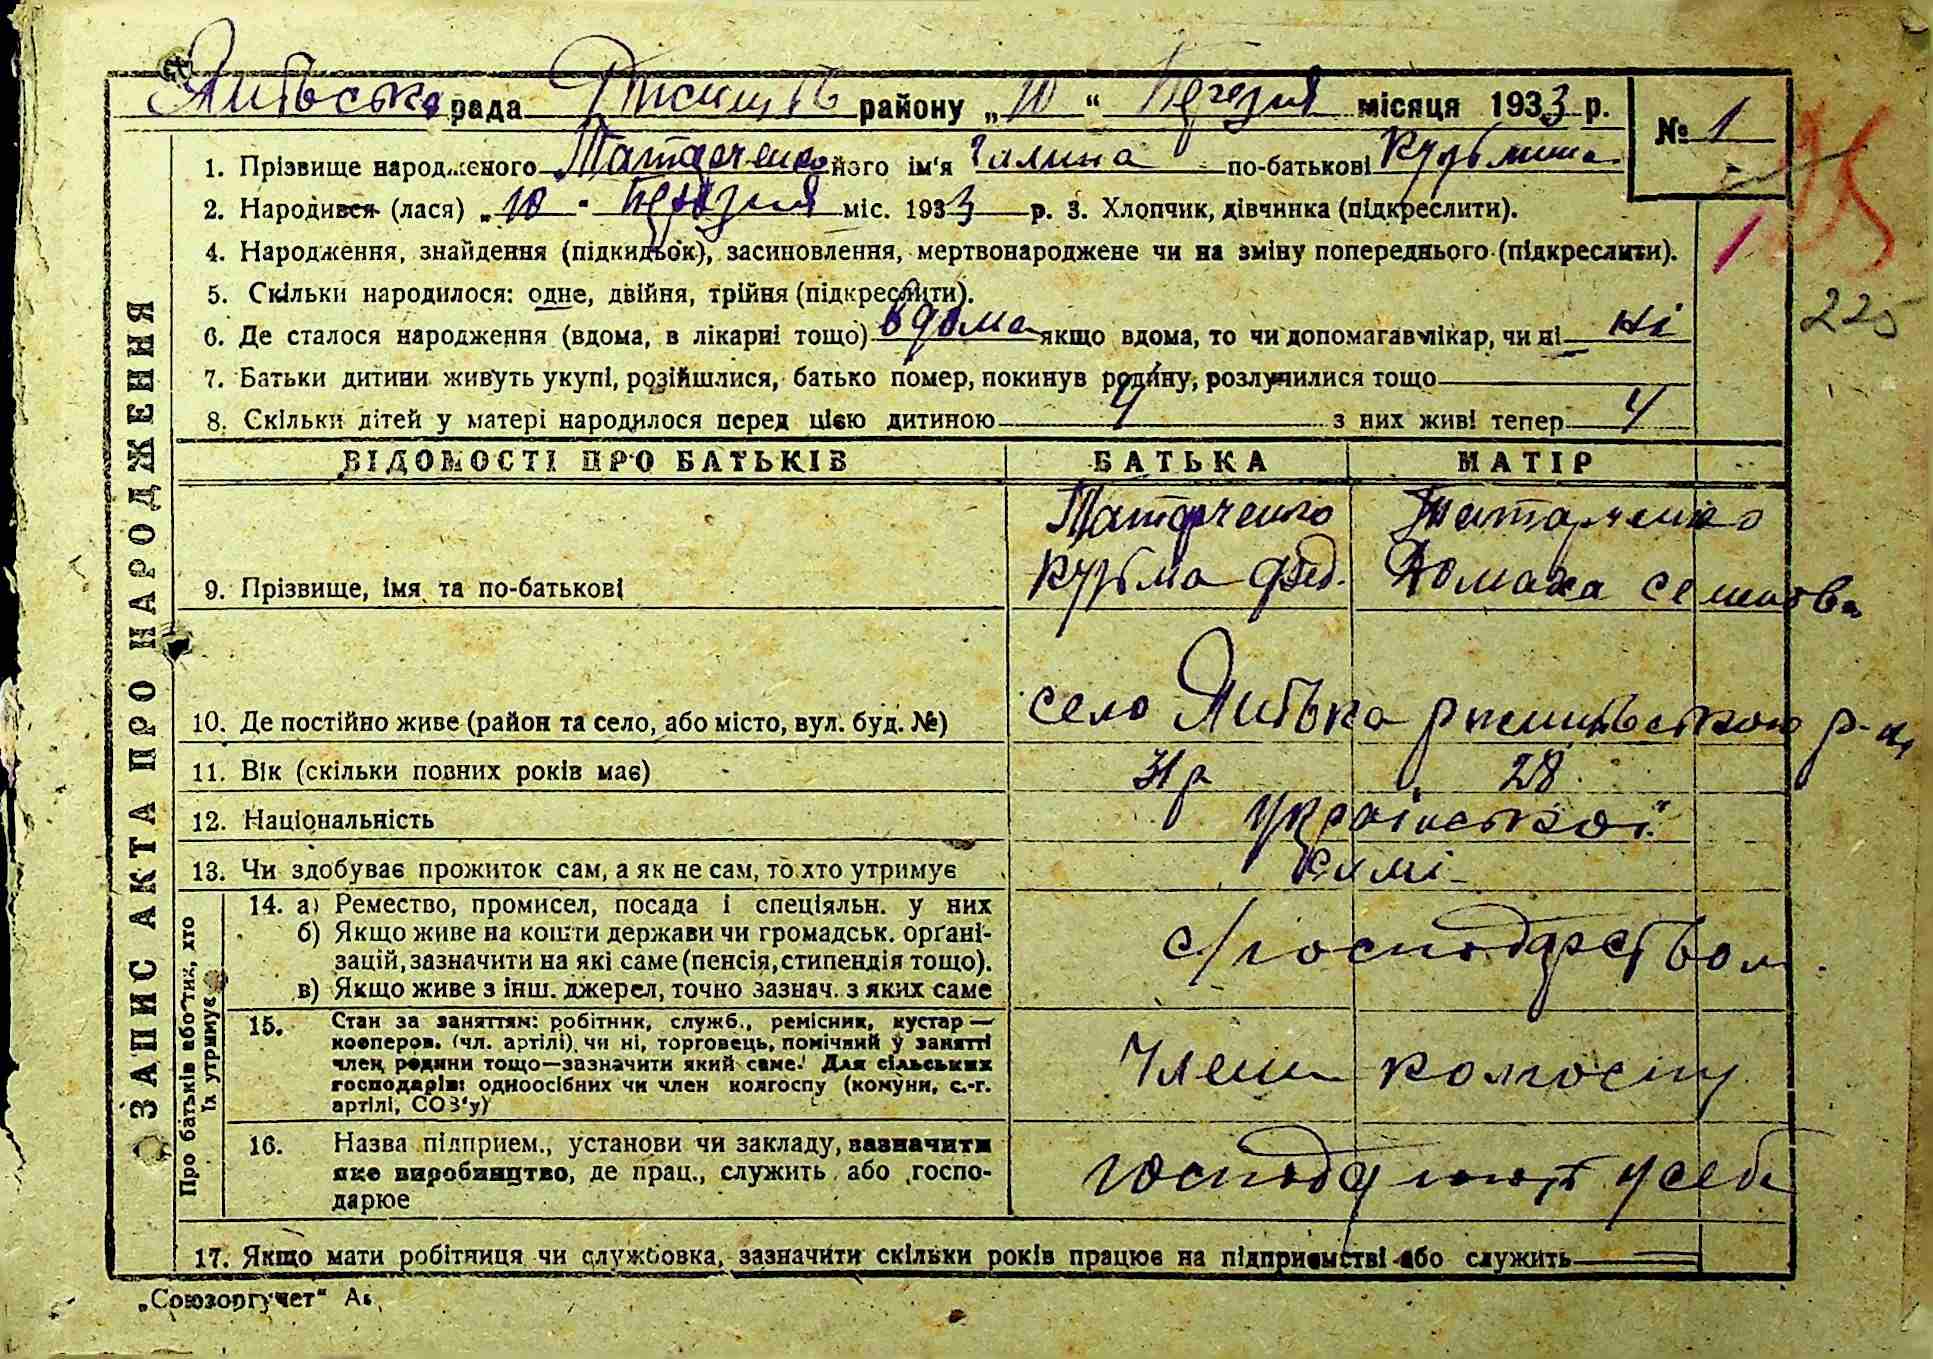 Липська рада Ржищів району „10“ Березня місяця 1933 р.
№ 1
1. Прізвище народженого Татарченко його ім'я Галина по-батькові Кузьмина
2. Народився (лася) „10“ Березня міс. 1933 р. 3. Хлопчик, дівчинка (підкреслити).
225
4. Народження, знайдення (підкидьок), засиновлення, мертвонароджене чи на зміну попереднього (підкреслити).
5. Скільки народилося: одне, двійня, трійня (підкреслити).
6. Де сталося народження (вдома, в лікарні тощо) вдома якщо вдома, то чи допомагав лікар, чи ні ні
7. Батьки дитини живуть укупі, розійшлися, батько помер, покинув родину, розлучилися тощо
8. Скільки дітей у матері народилося перед цією дитиною 4 з них живі тепер 4
ЗАПИС АКТА ПРО НАРОДЖЕННЯ
ВІДОМОСТІ ПРО БАТЬКІВ БАТЬКА МАТІР
Татарченко Татарченко
9. Прізвище, імя та по-батькові Кузьма Фед. Домаха Семенова
10. Де постійно живе (район та село, або місто, вул. буд. №) село
11. Вік (скільки повних років має) 31 р 28
12. Національність української
13. Чи здобуває прожиток сам, а як не сам, то хто утримує самі
Про батьків або тих, хто їх утримує
14. а) Ремество, промисел, посада і спеціяльн. у них
б) Якщо живе на кошти держави чи громадськ. органі-
зацій, зазначити на які саме (пенсія, стипендія тощо). с/господарством
в) Якщо живе з інш. джерел, точно зазнач. з яких саме
15. Стан за заняттям: робітник, служб., ремісник, кустар —
кооперов. (чл. артілі) чи ні, торговець, помічний у занятті
член родини тощо—зазначити який саме. Для сільських
господарів: одноосібних чи член колгоспу (комуни, с.-г.
артілі, СОЗ'у)
Члени колгоспу
16. Назва підприєм., установи чи закладу, зазначити
яке виробництво, де прац., служить або госпо-
дарює
господарюють у себе
17. Якщо мати робітниця чи службовка, зазначити скільки років працює на підприємстві або служить
„Союзоргучет“